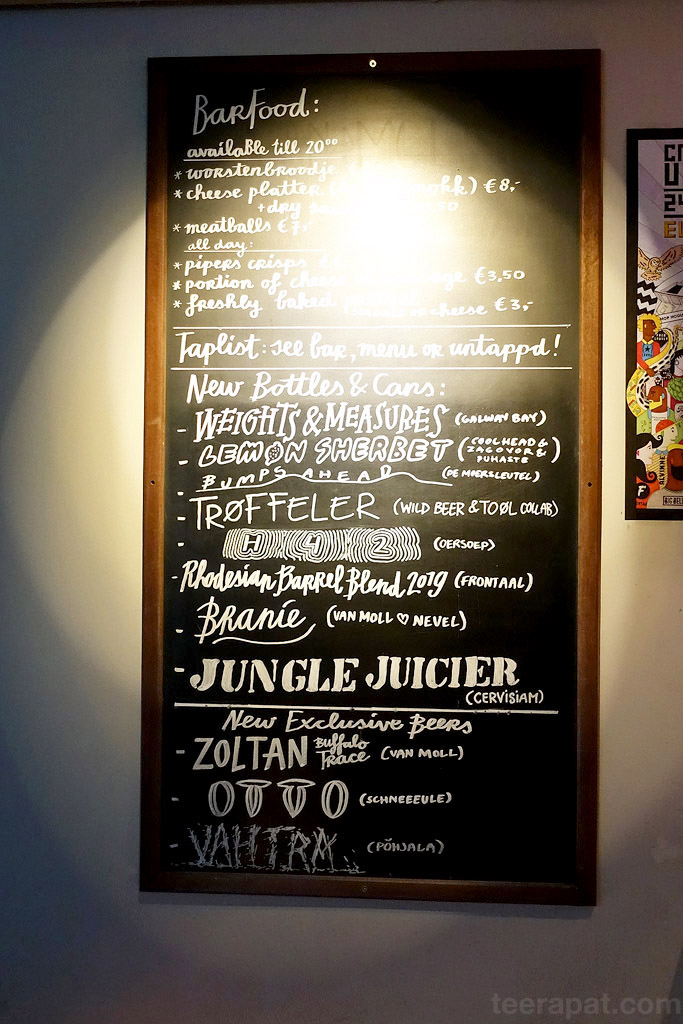 BarFood:
available till 20⁰⁰
* worstenbroodje
* cheese platter €8,-
+dry 50
* meatballs €7,-
all day:
* pipers crisps
* portion of cheese €3,50
* freshly baked cheese €3,-
Taplist: see bar, menu or untappd!
New Bottles & Cans:
- WEIGHTS & MEASURES (GALWAY BAY)
- LEMON SHERBET (COOLHEAD & ZAGOVOR & PUHASTE)
- BUMPS AHEAD (DE MOERSLEUTEL)
- TRØFFELER (WILD BEER & TO ØL COLLAB)
- H42 (OERSOEP)
- Rhodesian Barrel Blend 2019 (FRONTAAL)
- Branie (VAN MOLL ♡ NEVEL)
- JUNGLE JUICIER
(CERVISIAM)
New Exclusive Beers
- ZOLTAN Buffalo Trace (VAN MOLL)
- OTTO (SCHNEEEULE)
- VAHTRA (PÕHJALA)
ALVINNE
teerapat.com